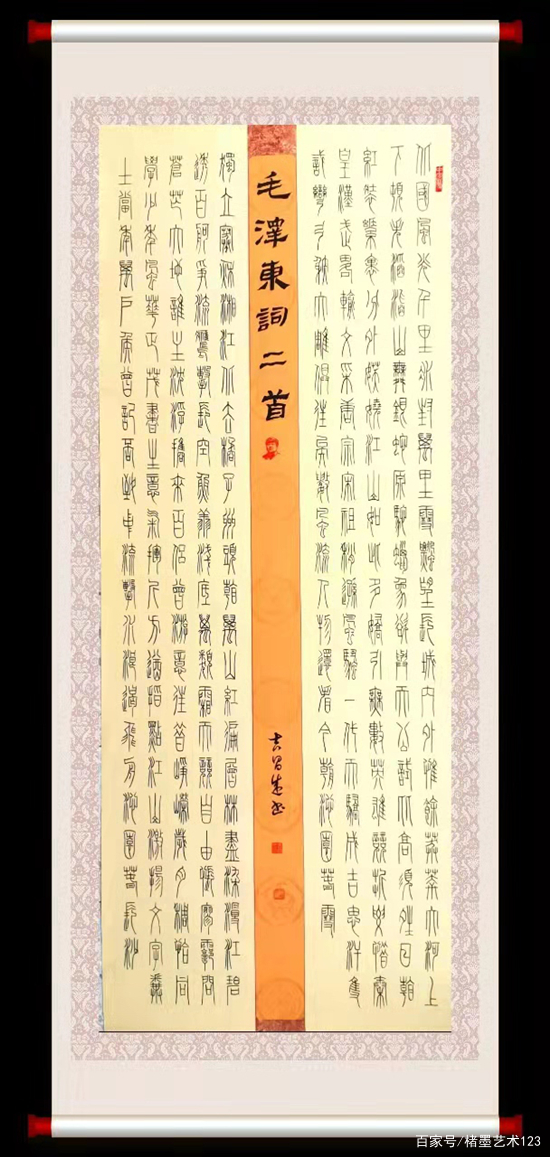 北國風光千里冰封萬里雪飄望長城內外惟餘莽莽大河上
下頓失滔滔山舞銀蛇原馳蠟象欲與天公試比高須晴日看
紅裝素裹分外妖嬈江山如此多嬌引無數英雄競折腰惜秦
皇漢武略輸文采唐宗宋祖稍遜風騷一代天驕成吉思汗隻
識彎弓射大雕俱往矣數風流人物還看今朝沁園春雪
毛澤東詞二首
獨立寒秋湘江北去橘子洲頭看萬山紅遍層林盡染漫江碧
透百舸爭流鷹擊長空魚翔淺底萬類霜天競自由悵寥廓問
蒼茫大地誰主沈浮攜來百侶曾游憶往昔崢嶸歲月稠恰同
學少年風華正茂書生意氣揮斥方遒指點江山激揚文字糞
土當年萬戶侯曾記否到中流擊水浪遏飛舟沁園春長沙
百家号/楮墨艺术123